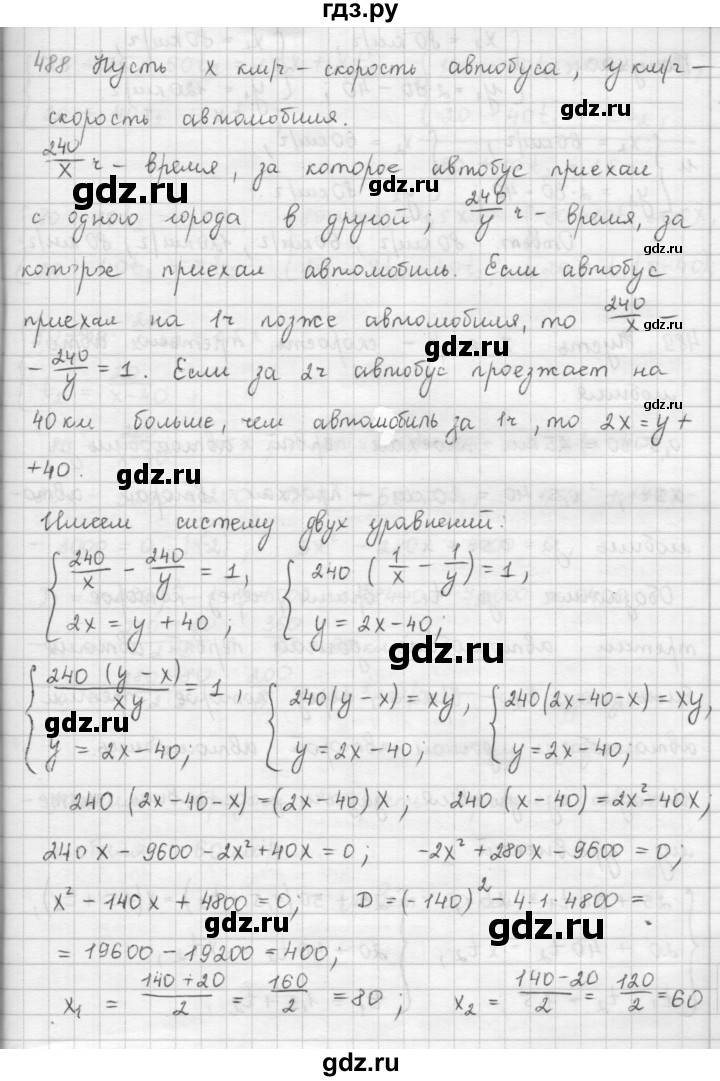 гдз.ру
488 Пусть x км/ч – скорость автобуса, y км/ч –
скорость автомобиля.
240/x ч – время, за которое автобус приехал
с одного города в другой; 240/y ч – время, за
которое приехал автомобиль. Если автобус
приехал на 1ч позже автомобиля, то 240/x –
- 240/y = 1. Если за 2ч автобус проезжает на
40 км больше, чем автомобиль за 1ч, то 2x = y +
+40.
Имеем систему двух уравнений:
{ 240/x - 240/y = 1, { 240 (1/x - 1/y) = 1,
2x = y + 40; y = 2x-40;
{ 240 (y - x)/xy = 1, { 240(y - x) = xy, { 240(2x-40-x) = xy,
y = 2x-40; y = 2x-40; y = 2x-40;
240 (2x-40-x) = (2x-40)x; 240 (x-40) = 2x²-40x;
240x - 9600 - 2x² + 40x = 0; -2x² + 280x - 9600 = 0;
x² - 140x + 4800 = 0, D = (-140)² - 4·1·4800 =
= 19600 - 19200 = 400;
x₁ = (140+20)/2 = 160/2 = 80; x₂ = (140-20)/2 = 120/2 = 60
gdz.ru
gdz.ru
gdz.ru
gdz.ru
gdz.ru
gdz.ru
gdz.ru
gdz.ru
gdz.ru
gdz.ru
gdz.ru
gdz.ru
gdz.ru
gdz.ru